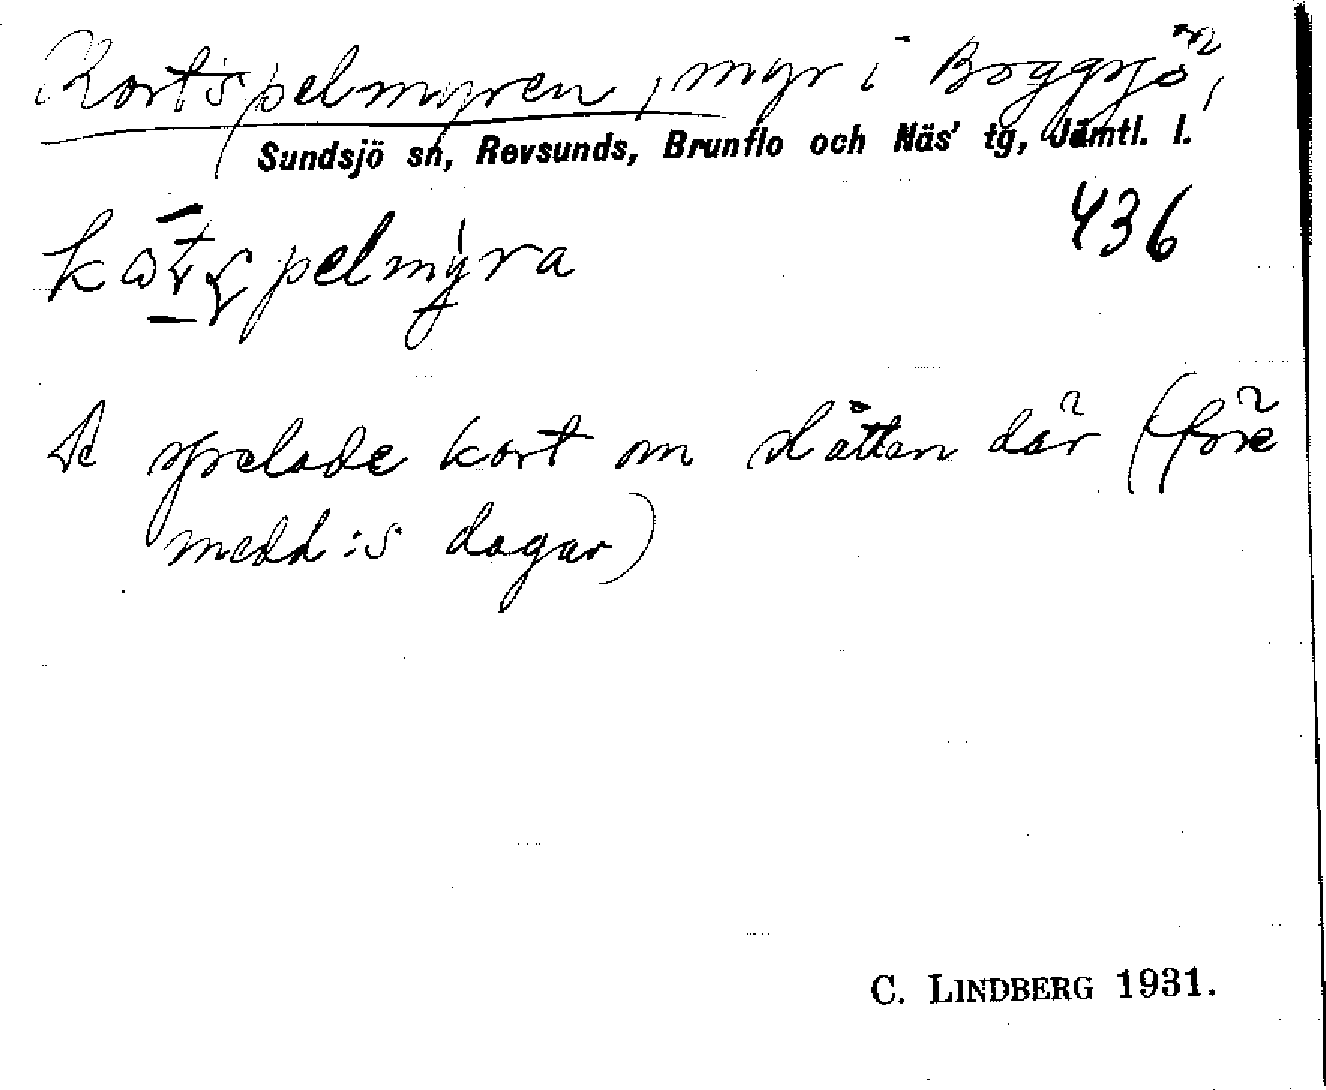 Kortspelmyren, myr i Boggsjö,
Sundsjö sn, Revsunds, Brunflo och Näs' tg, Jämtl. l.
436
De spelade kort om slåttan där (före
medd:s dagar)
C. LINDBERG 1931.